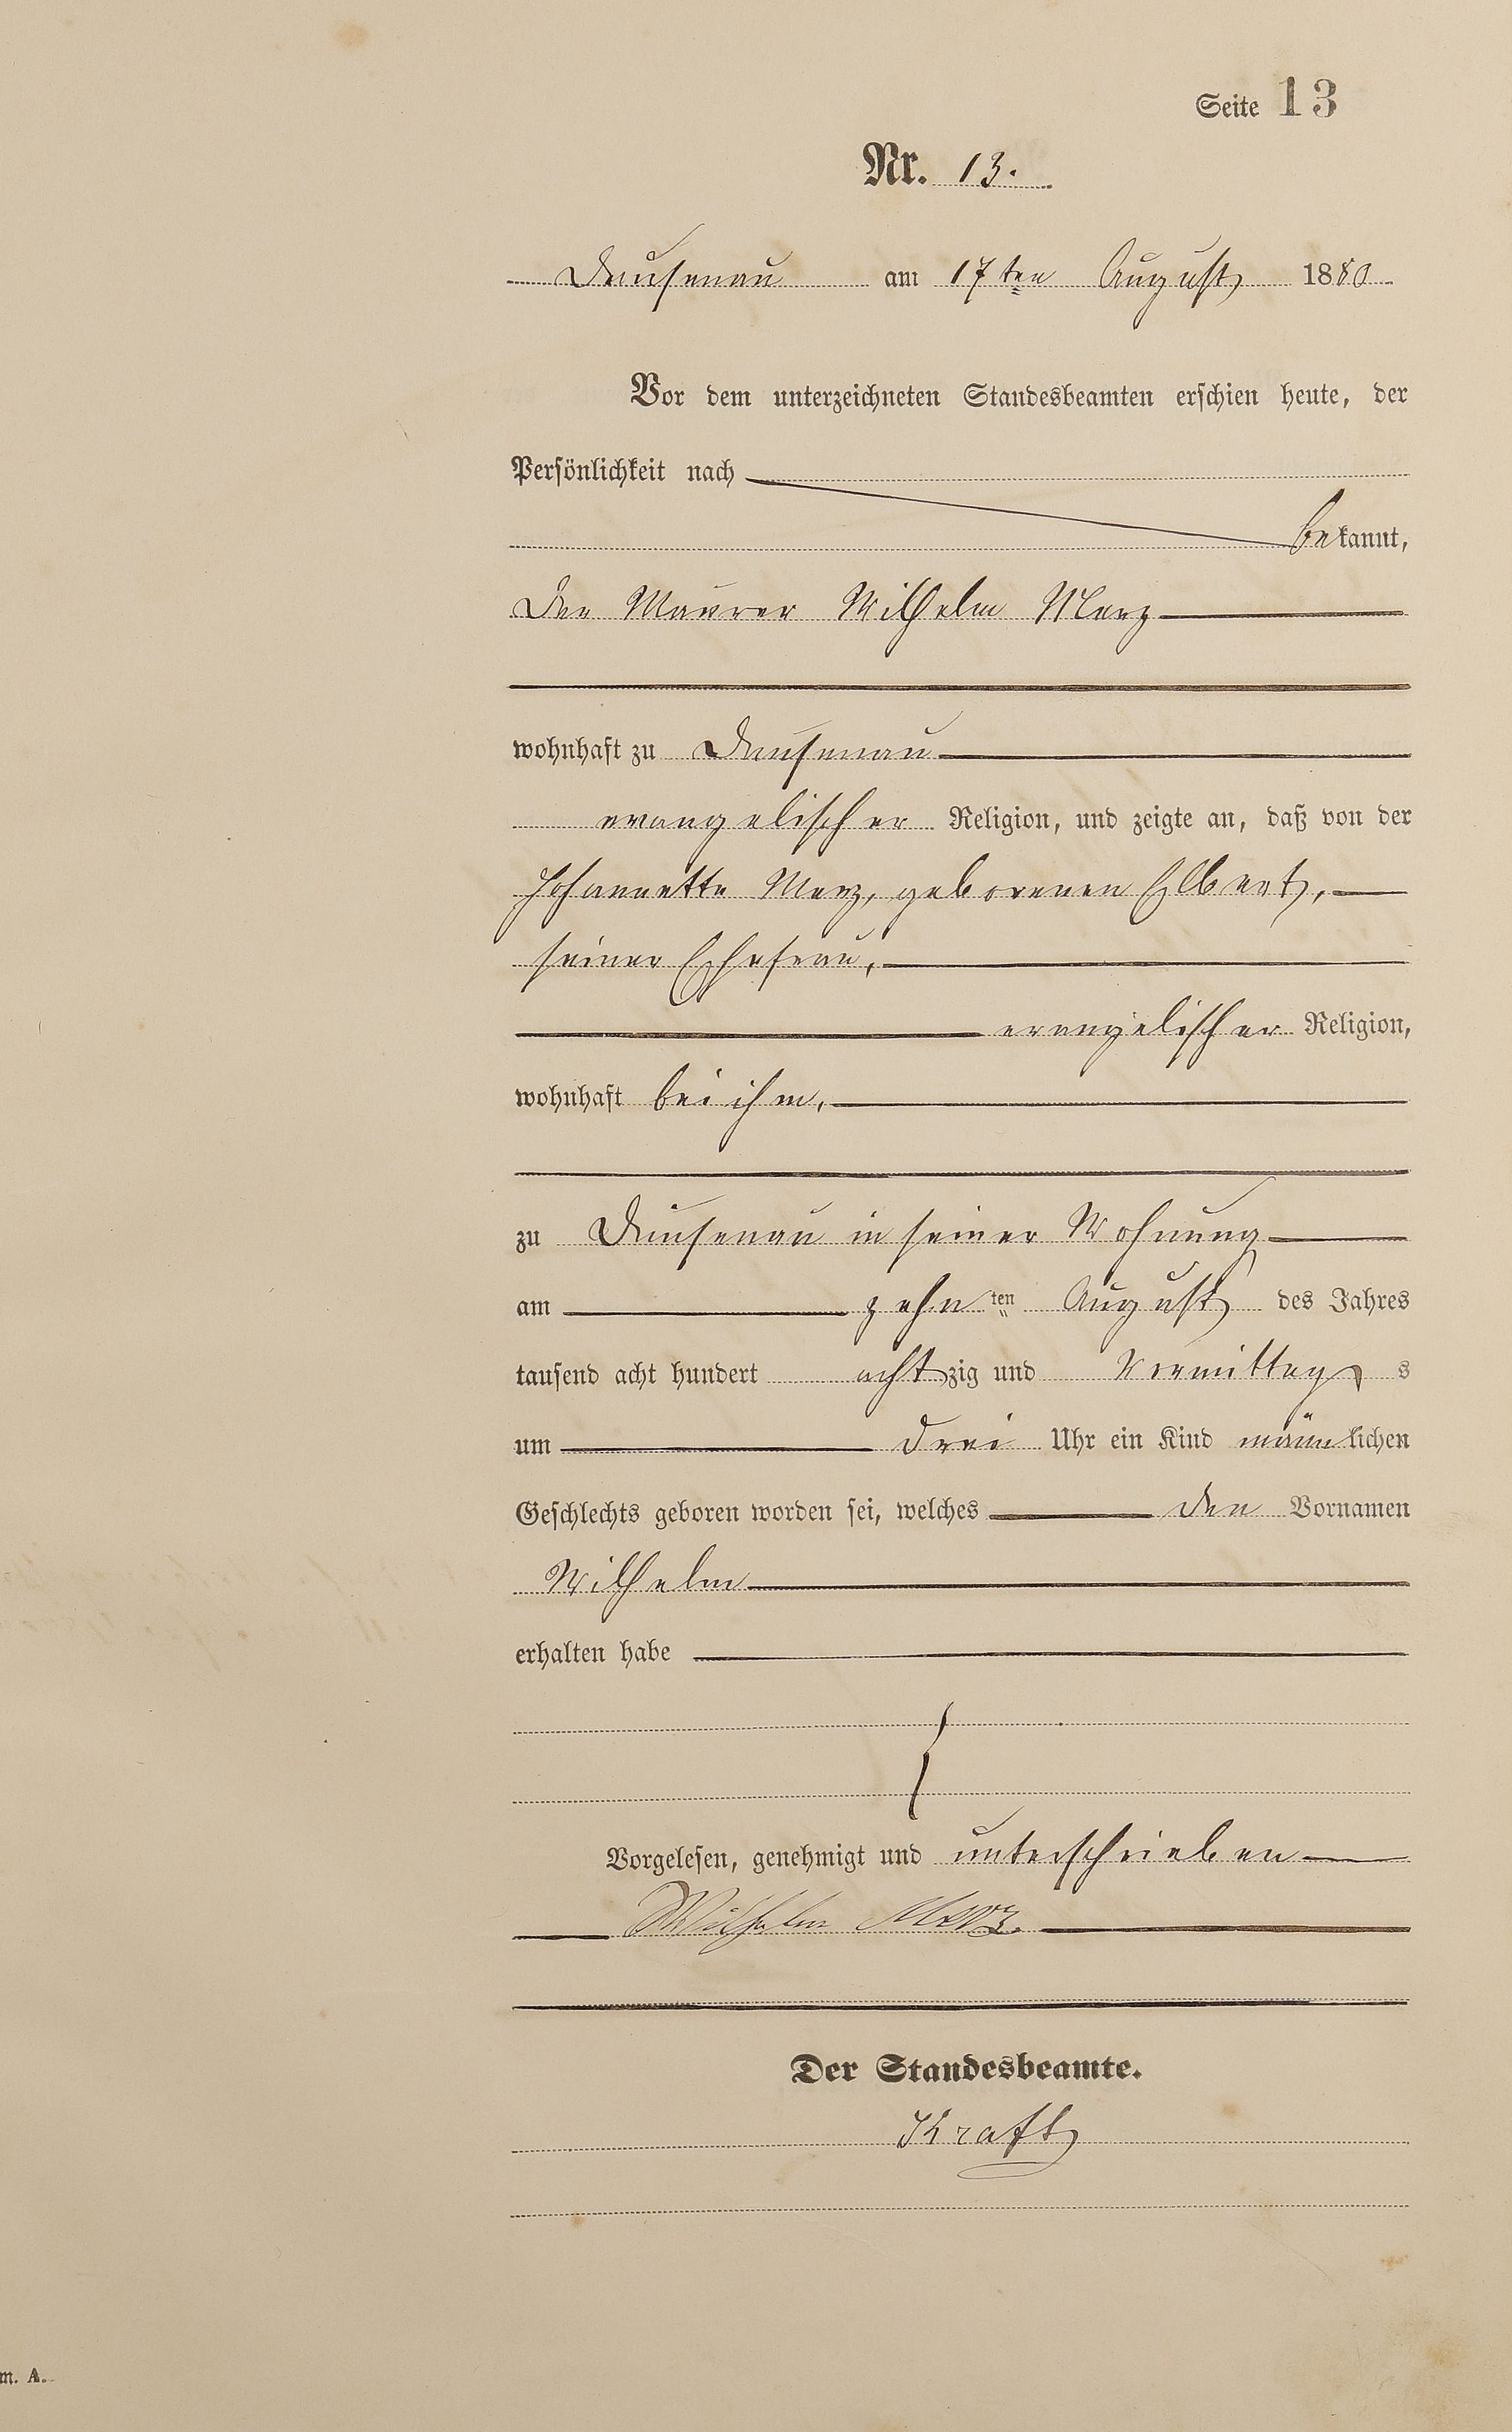 Seite 13
Nr. 13.
Dausenau am 17ten August 1880
Vor dem unterzeichneten Standesbeamten erschien heute, der
Persönlichkeit nach
bekannt,
Der Maurer Wilhelm Merz
wohnhaft zu Dausenau
evangelischer Religion, und zeigte an, daß von der
Johannette Merz, geborenen Elbert,
seiner Ehefrau,
evangelischer Religion,
wohnhaft bei ihm,
zu Dausenau in seiner Wohnung
am zehnten August des Jahres
tausend acht hundert achtzig und Vormittags
um drei Uhr ein Kind männlichen
Geschlechts geboren worden sei, welches den Vornamen
Wilhelm
erhalten habe
Vorgelesen, genehmigt und unterschrieben
Wilhelm Merz.
Der Standesbeamte.
Kraft
m. A.